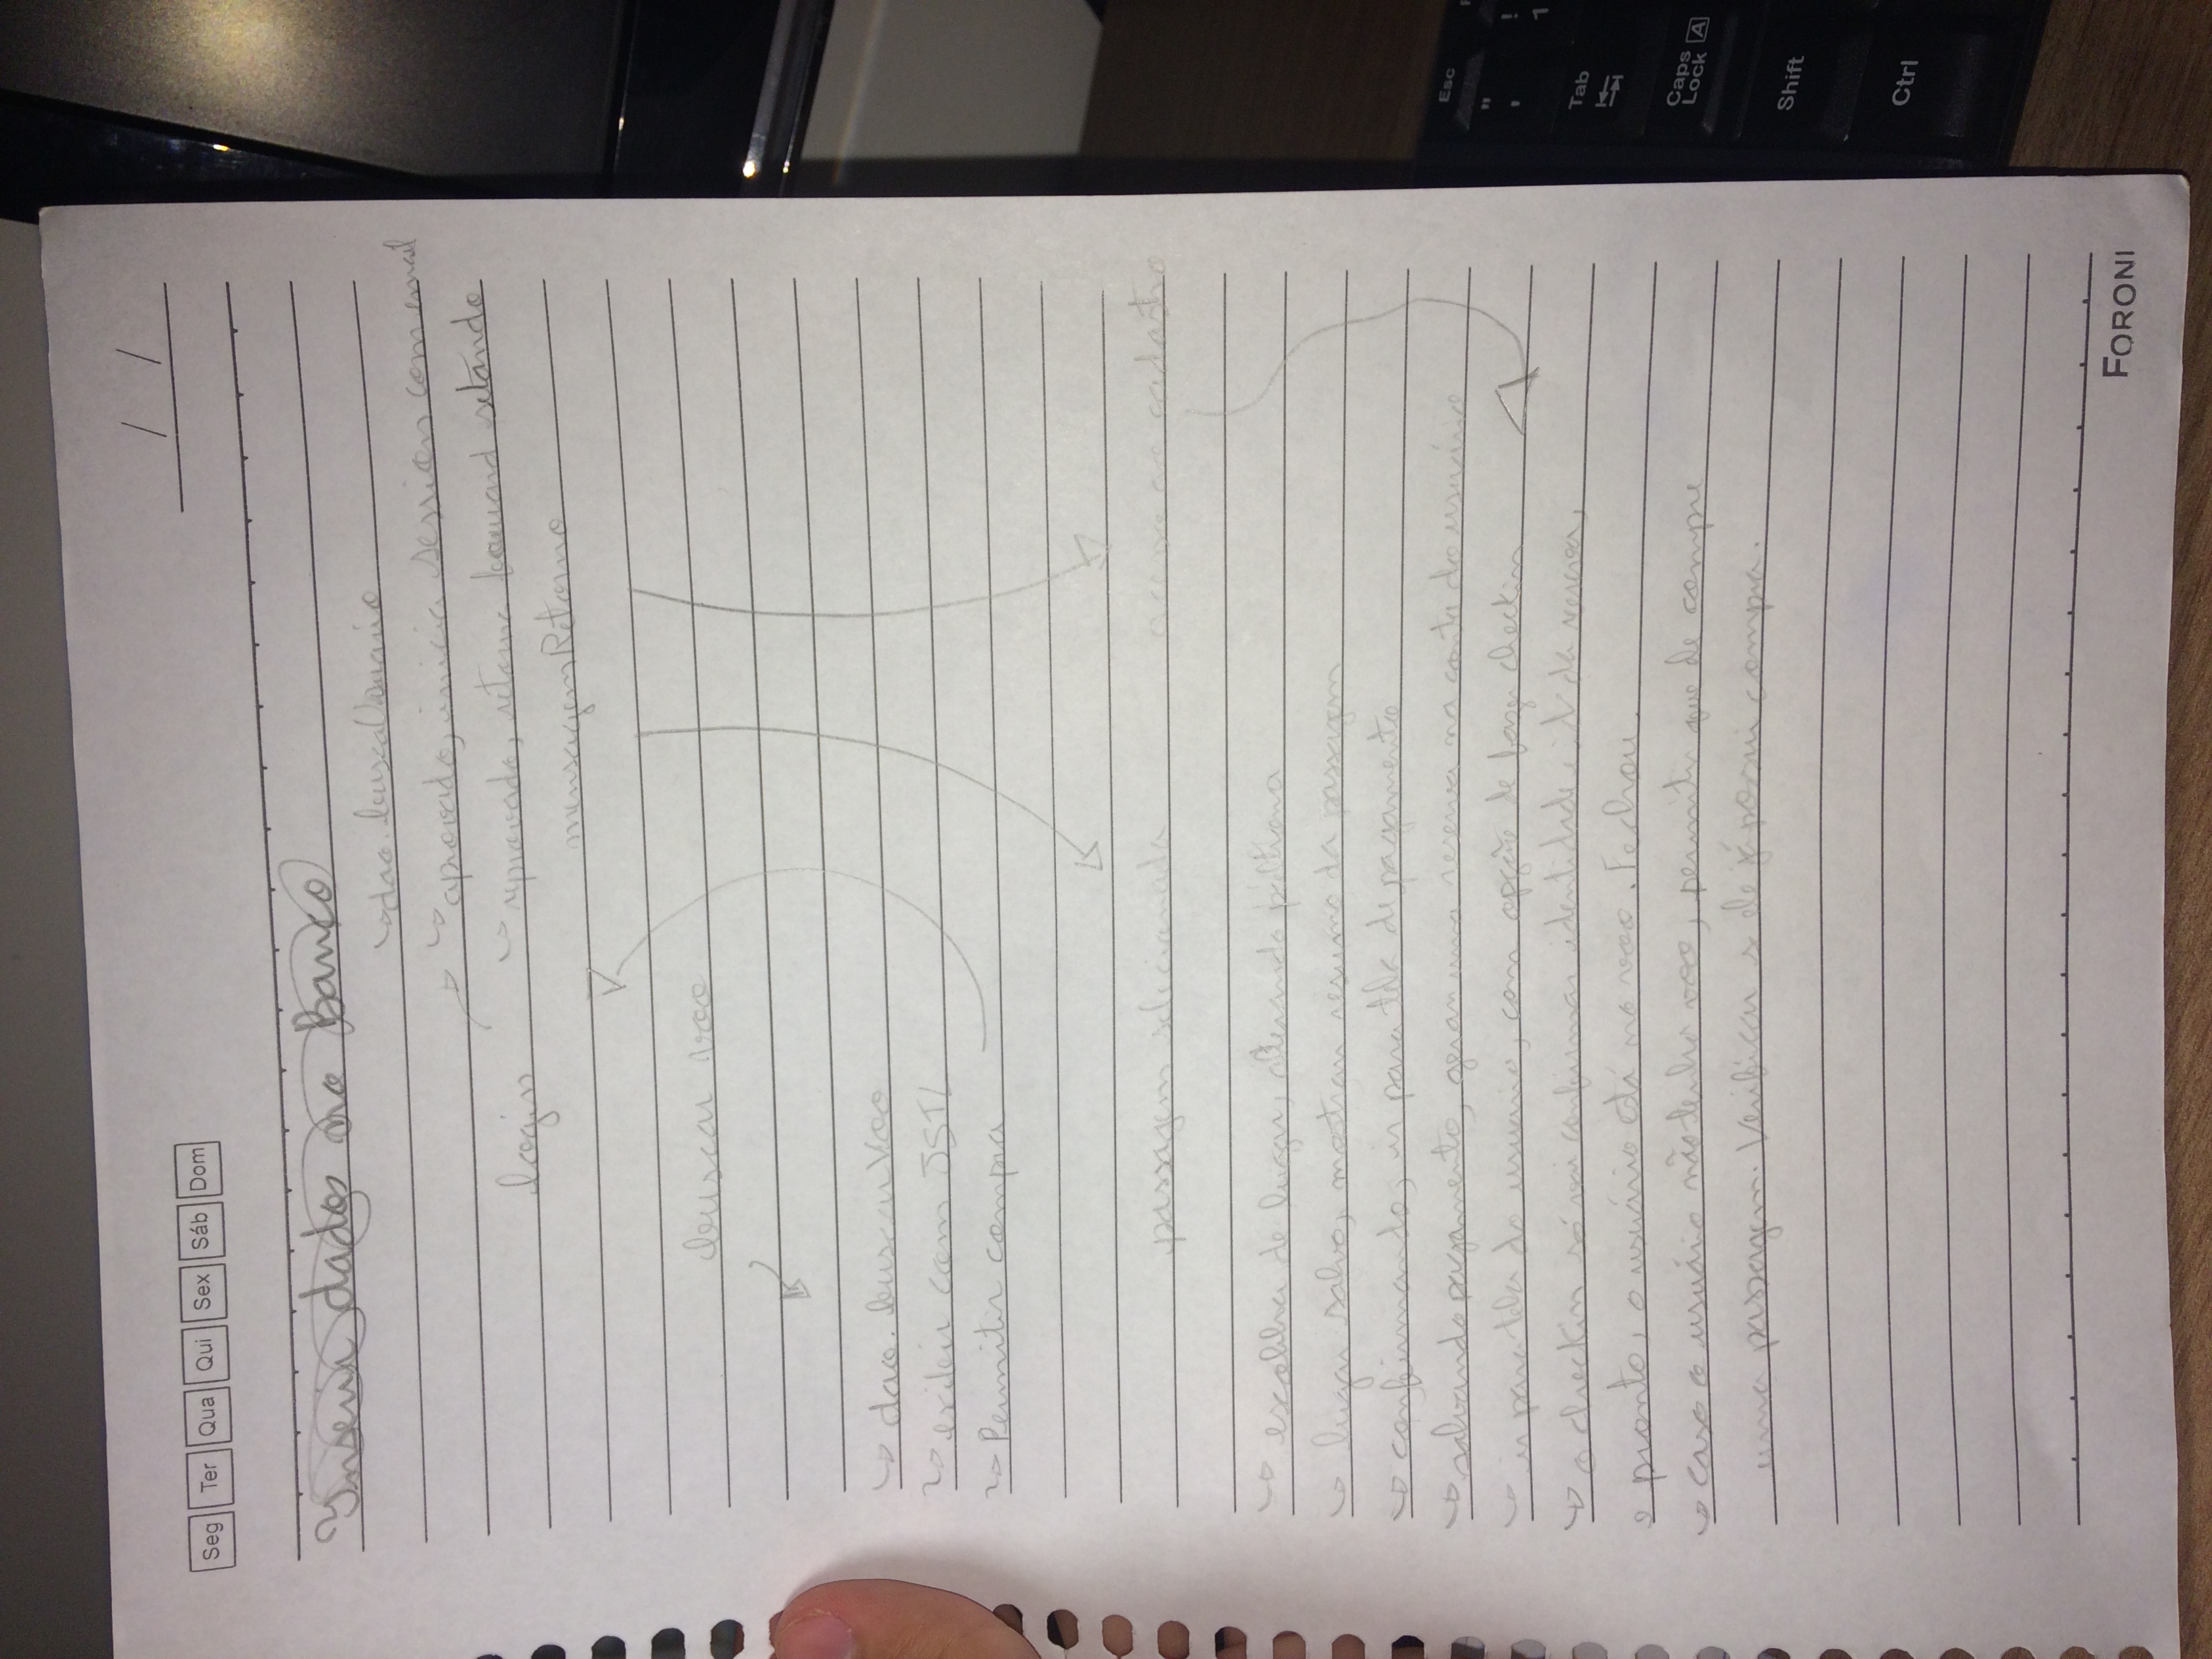 Seg Ter Qua Qui Sex Sáb Dom
/ /
Inserir dados no Banco
↳ dao.buscaUsuario
↳ aprovado, inicia session com email
login
↳ reprovado, retorna forward setando
mensagemRetorno
buscar voo
↳ dao.buscarVoo
↳ exibir com JSTL
↳ Permitir compra
passagem selecionada
acesso ao cadastro
↳ escolha de lugar, alterando poltrona
↳ lugar salvo, mostrar resumo da passagem
↳ confirmando, ir para tela de pagamento
↳ salvando pagamento, gerar uma reserva na conta do usuário
↳ ir para tela do usuario, com opção de fazer checkin
↳ o checkin só vai confirmar identidade e id da reserva,
e pronto, o usuário está no voo. Fechou.
↳ caso o usuário não tenha voo, permitir que ele compre
uma passagem. Verificar se ele já possui compra.
FORONI
Esc
" '
! 1
Tab
Caps Lock A
Shift
Ctrl